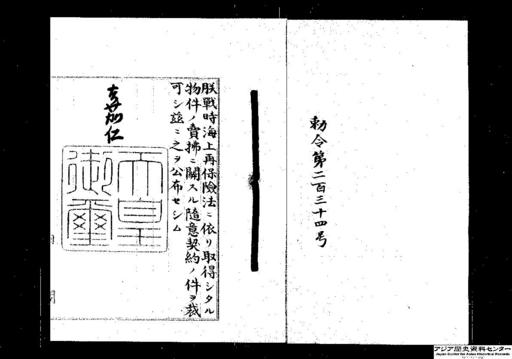 勅令第二百三十四号
朕戰時海上再保險法ニ依リ取得シタル
物件ノ賣拂ニ關スル隨意契約ノ件ヲ裁
可シ玆ニ之ヲ公布セシム
嘉仁
天皇
御璽
アジア歴史資料センター
Japan Center for Asian Historical Records